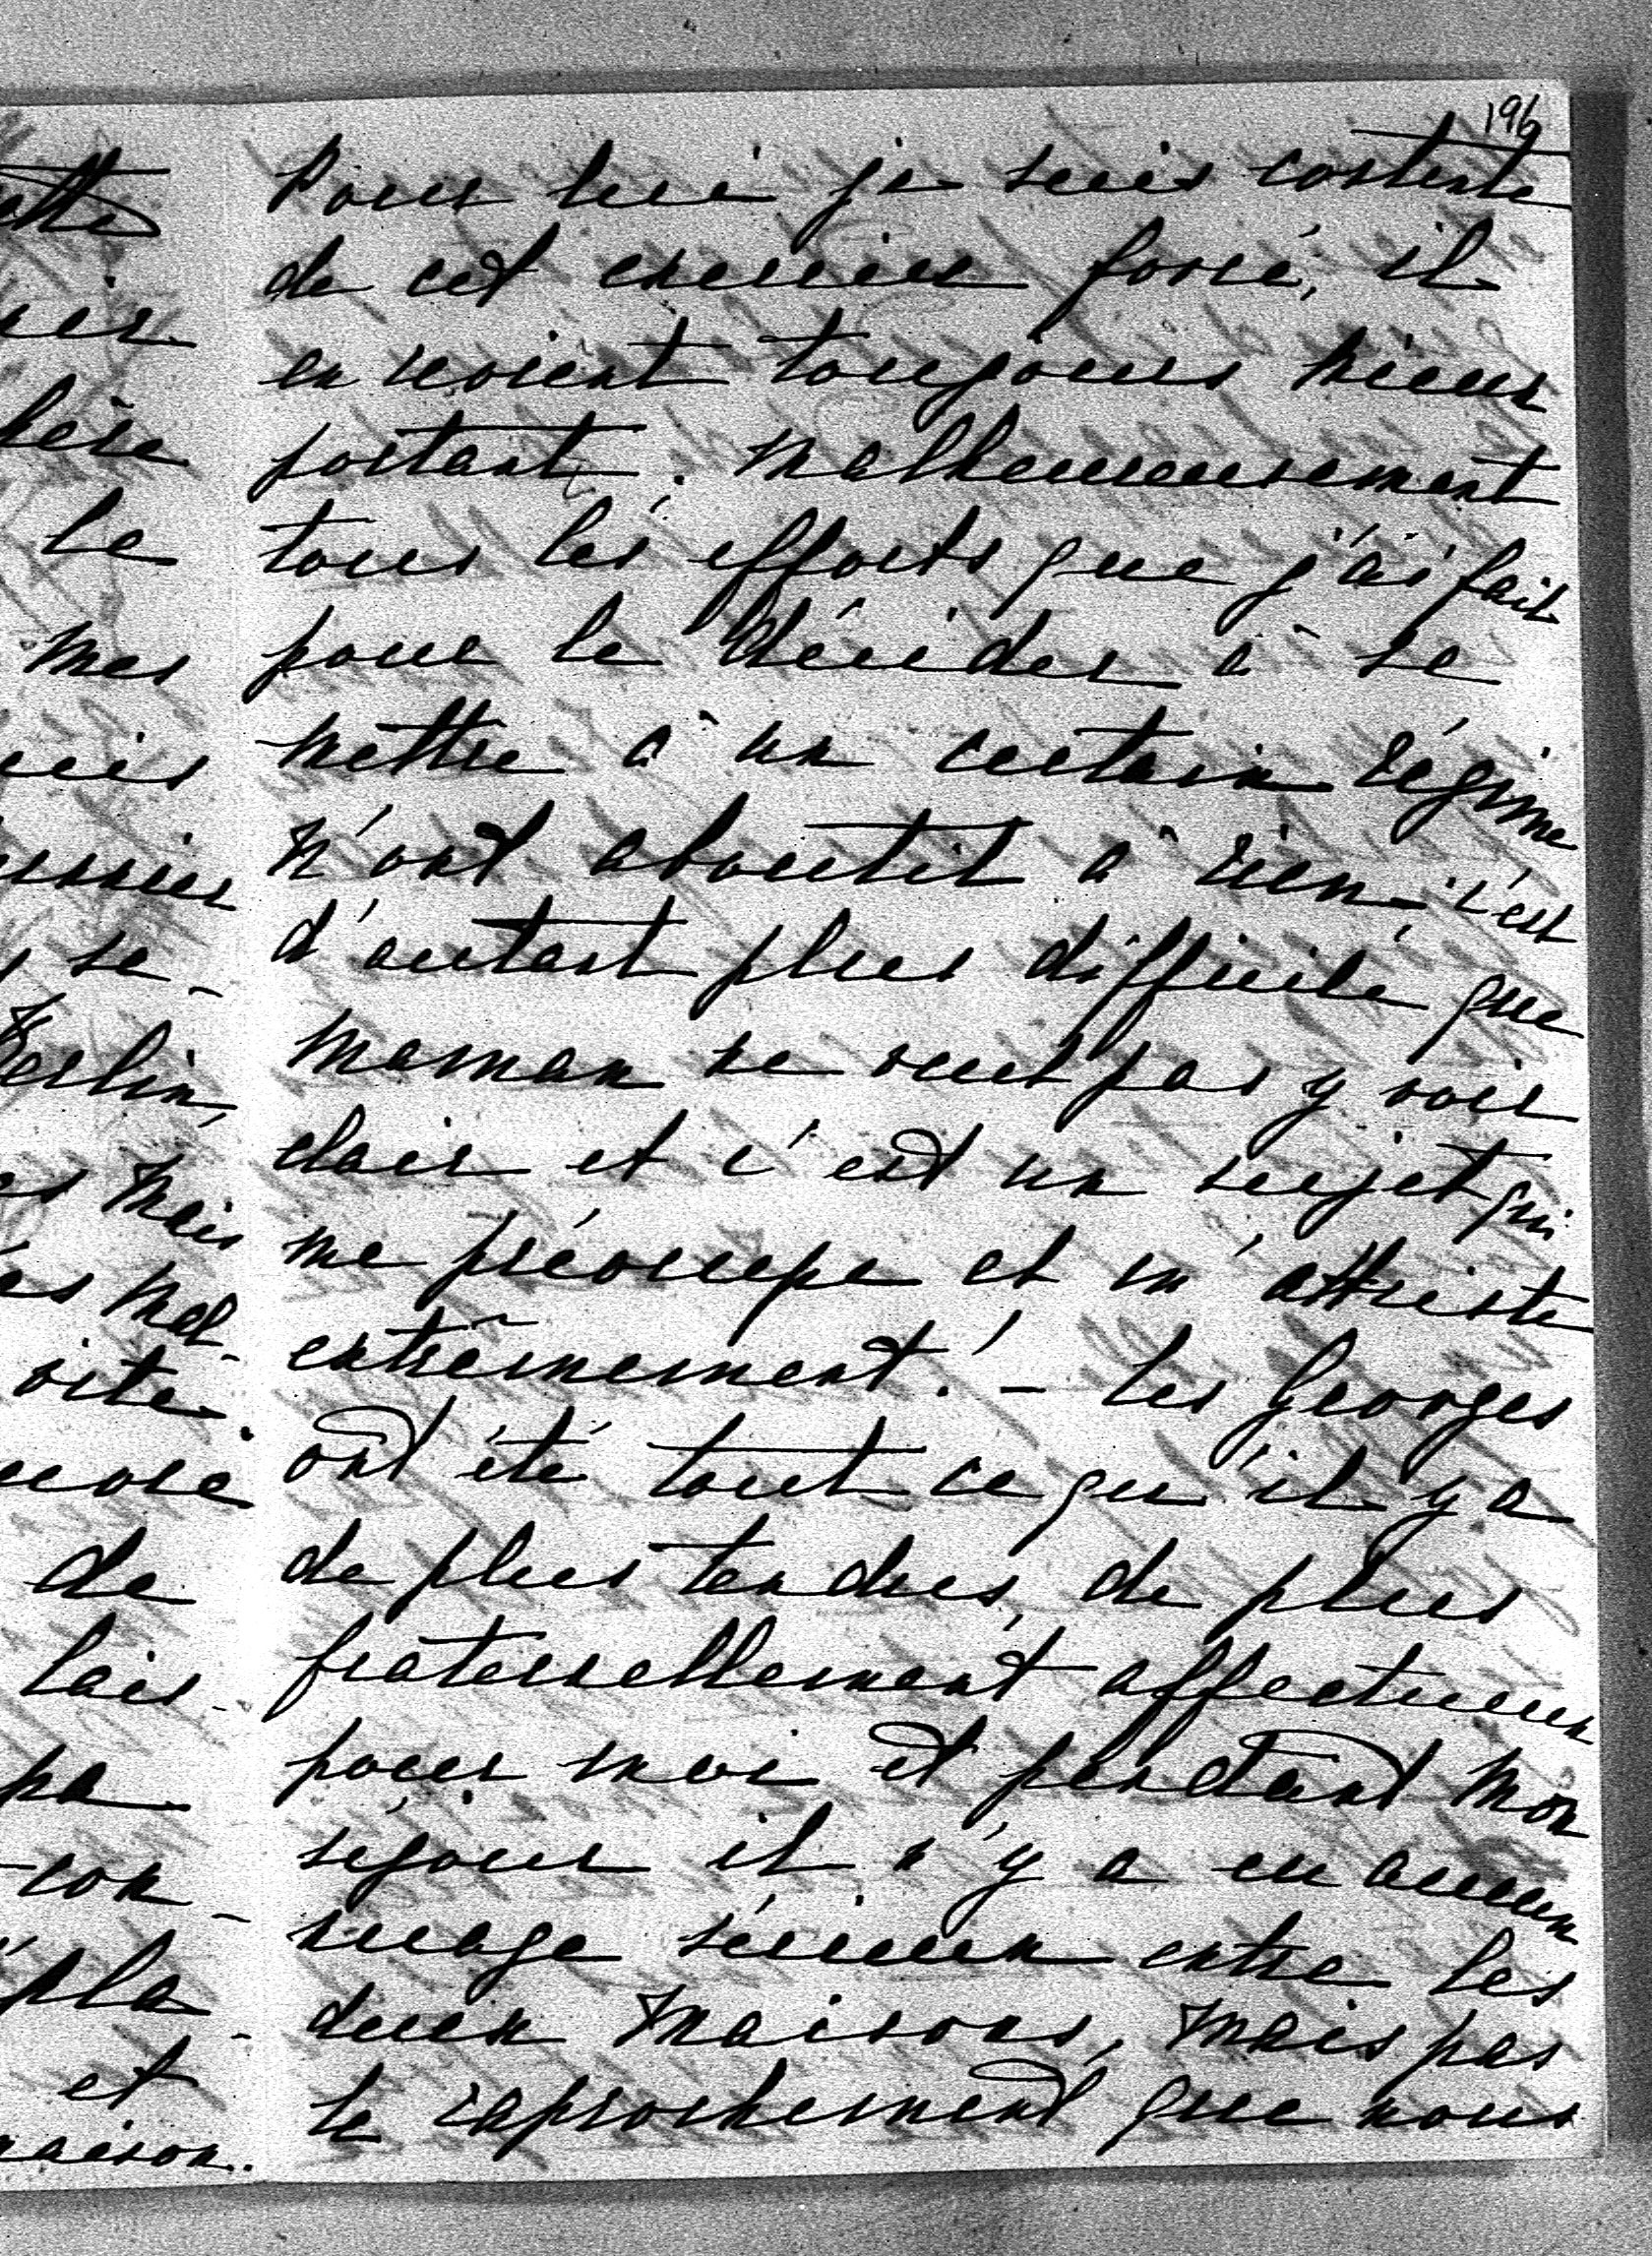 196
Pour lui je suis contente
de cet exercice forcé, il
en revient toujours mieux
portant. Malheureusement
tous les efforts que j'ai fait
pour le décider à se
mettre à un certain régime
n'ont aboutit à rien, c'est
d'autant plus difficile que
maman ne veut pas y voir
clair et c'est un sujet qui
me préoccupe et m'attriste
extrêmement! - Les Georges
ont été tout ce qu'il y a
de plus tendres, de plus
fraternellement affectueux
pour moi et pendant mon
séjour il n'y a eu aucun
nuage sérieux entre les
deux maisons, mais pas
le raprochement que nous
le
mes
se-
mais
vite.
de
pa
con-
et